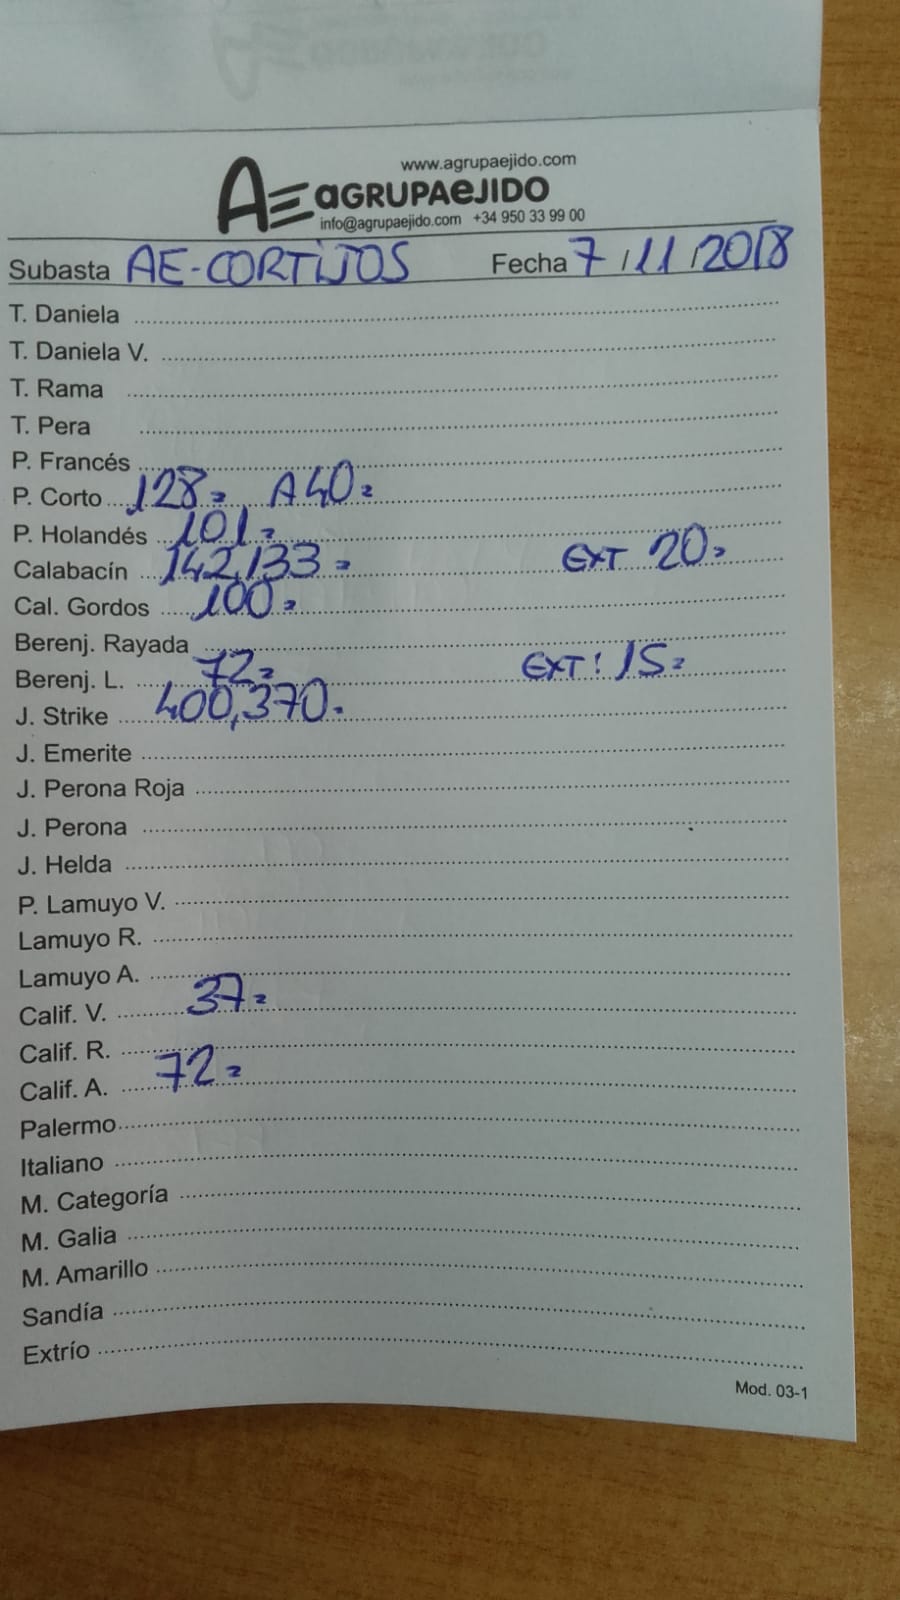 www.agrupaejido.com
AE aGRUPAeJIDO
info@agrupaejido.com +34 950 33 99 00
Subasta AE-CORTIJOS Fecha 7/11/2018
T. Daniela
T. Daniela V.
T. Rama
T. Pera
P. Francés
P. Corto 128= A 40=
P. Holandés 101=
Calabacín 142,133= EXT 20=
Cal. Gordos 100=
Berenj. Rayada
Berenj. L. 72= EXT: 15=
J. Strike 400,370.
J. Emerite
J. Perona Roja
J. Perona
J. Helda
P. Lamuyo V.
Lamuyo R.
Lamuyo A.
Calif. V. 37=
Calif. R.
Calif. A. 72=
Palermo
Italiano
M. Categoría
M. Galia
M. Amarillo
Sandía
Extrío
Mod. 03-1